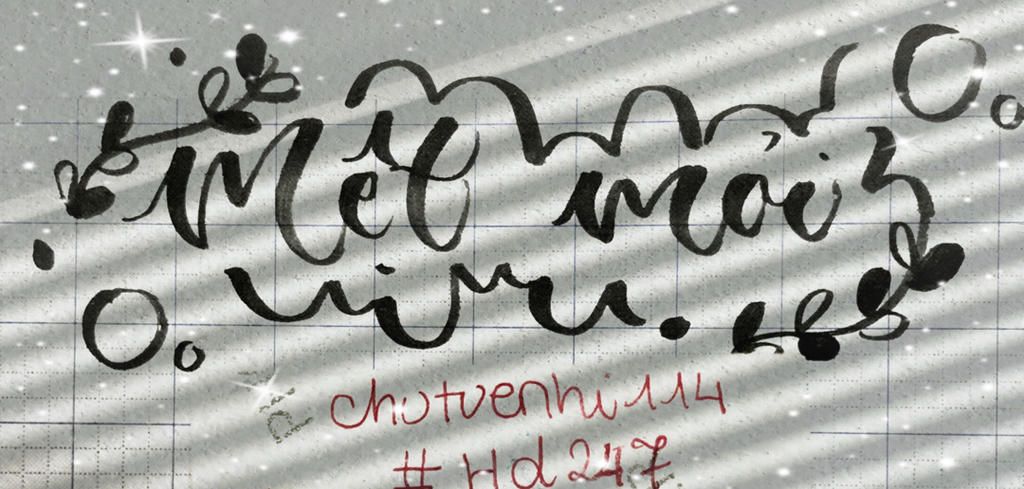 Mệt mỏi
chutuenhi114
#Hd247